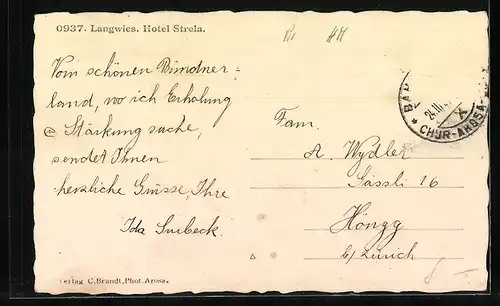 0937. Langwies. Hotel Strela.
Vom schönen Bündner-
land, wo ich Erholung
& Stärkung suche,
sendet Ihnen
herzliche Grüsse, Ihre
Ida
Fam.
A. Wydler
Gässli 16
Höngg
b/ Zürich
24.III.
X
* CHUR-AROSA
Verlag C. Brandt, Phot. Arosa.